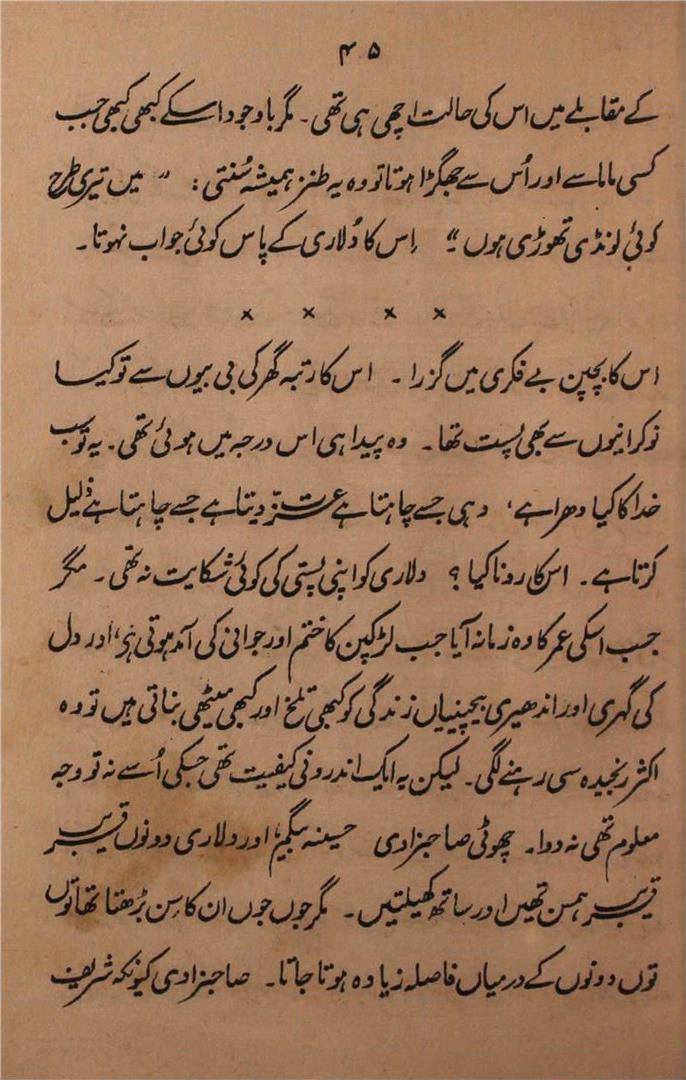 ۴۵
کے مقابلے میں اس کی حالت اچھی ہی تھی۔ مگر باوجود اسکے کبھی کبھی جب
کسی ماما سے اور اُس سے جھگڑا ہوتا تو وہ یہ طنز ہمیشہ سُنتی: " میں تیری طرح
کوئی لونڈی تھوڑی ہوں۔" اِس کا دُلاری کے پاس کوئی جواب نہوتا۔
× × × ×
اس کا بچپن بے فکری میں گزرا۔ اس کا رتبہ گھر کی بی بیوں سے تو کیا
نوکرانیوں سے بھی پست تھا۔ وہ پیدا ہی اس درجہ میں ہوئی تھی۔ یہ تو سب
خدا کا کیا دھرا ہے، وہی جسے چاہتا ہے عزت دیتا ہے جسے چاہتا ہے ذلیل
کرتا ہے۔ اس کا رونا کیا؟ دلاری کو اپنی پستی کی کوئی شکایت نہ تھی۔ مگر
جب اسکی عمر کا وہ زمانہ آیا جب لڑکپن کا ختم اور جوانی کی آمد ہوتی ہے، اور دل
کی گہری اور اندھیری بیچینیاں زندگی کو کبھی تلخ اور کبھی میٹھی بناتی ہیں تو وہ
اکثر رنجیدہ سی رہنے لگی۔ لیکن یہ ایک اندرونی کیفیت تھی جسکی اُسے نہ تو وجہ
معلوم تھی نہ دوا۔ چھوٹی صاحبزادی حسینہ بیگم، اور دلاری دونوں قریب
قریب ہمسن تھیں اور ساتھ کھیلتیں۔ مگر جوں جوں ان کا سِن بڑھتا تھا توں
توں دونوں کے درمیاں فاصلہ زیادہ ہوتا جاتا۔ صاحبزادی کیونکہ شریف